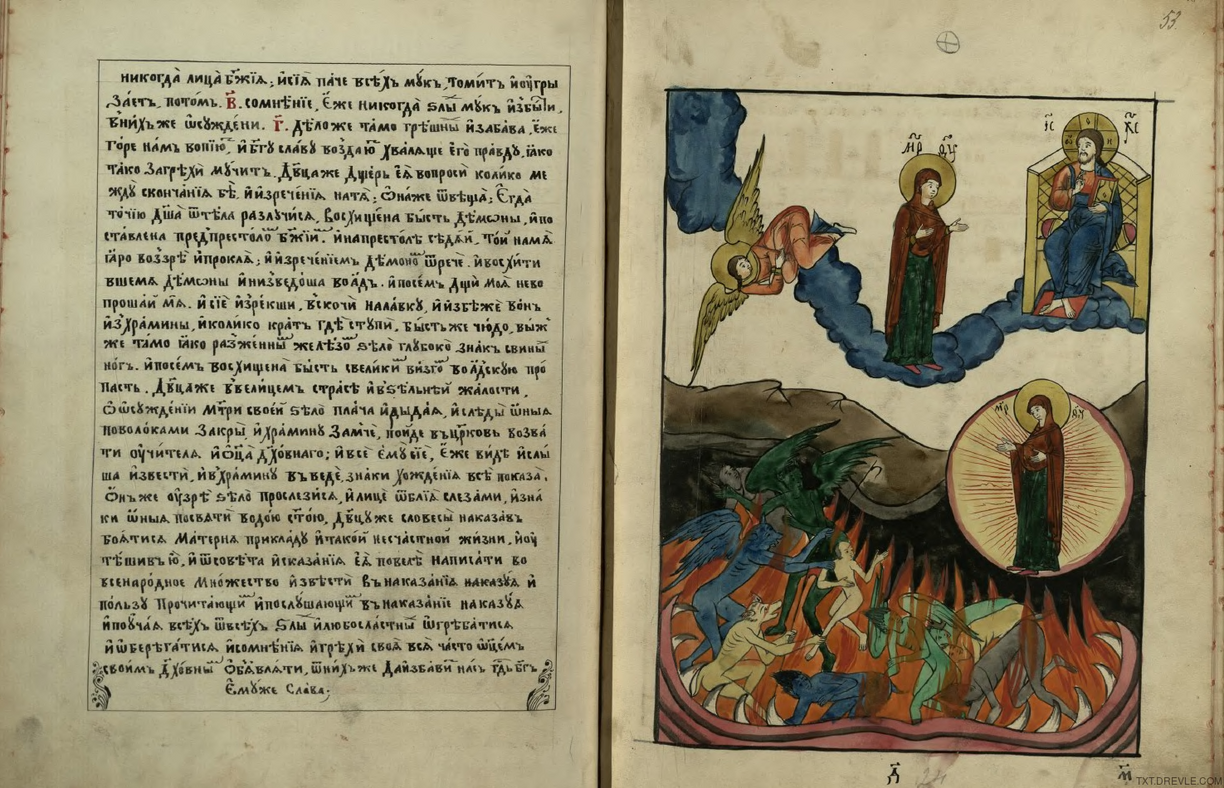 никогда̀ лица̀ бж҃їѧ; и҆сїѧ̀ па́че всѣ́хъ мꙋ́къ, томи́тъ и҆ᲂу҆гры
за́етъ. пото́мъ. в҃. сомнѣ́нїе, є҆́же никогда̀ ѕлы̀ мꙋ́къ и҆збы́ти,
в̾ни́хъже ѡ҆сꙋжде́ни. г҃. дѣ́ло же та́мо грѣ́шны и҆заба́ва, є҆́же
го́ре на́мъ вопїю̀, и҆ бг҃ꙋ сла́вꙋ воздаю̀ хва́лѧще є҆го̀ пра́вдꙋ, ꙗ҆́кѡ
та́ко загрѣхѝ мꙋ́читъ. дв҃ца же дще́рь є҆ѧ̀ вопросѝ коли́ко ме
ждꙋ̀ сконча́нїѧ бѣ̀, и҆ и҆зрече́нїѧ натѧ̀; ѻ҆на́же ѿвѣща̀; є҆гда̀
то́чїю дш҃а̀ ѿтѣ́ла разлꙋчи́сѧ, восхище́на бы́сть де́мѡны, и҆по
ста́влена пред̾престоло́ бж҃їи. и҆напресто́лѣ сѣдѧ́й, то́й намѧ̀
ꙗ҆́ро воззрѣ̀ и҆проклѧ̀; и҆ и҆зрече́нїемъ де́моно ѿречѐ. и҆восхи́ти
вшемѧ̀ де́мѡны и҆низведо́ша воа҆́дъ. и҆посе́мъ дщѝ моѧ̀ нево
проша́й мѧ̀. и҆ сїѐ и҆зре́кши, вскочѝ нала́вкꙋ, и҆ и҆збѣжѐ во́нъ
и҆зхра́мины, и҆коли́ко кра́тъ гдѣ̀ стꙋпѝ, бы́сть же чю́до, выж
же та́мо ꙗ҆́кѡ разже́нны желѣ́зо ѕѣлѡ̀ глꙋбоко̀ зна́къ свины̀
но́гъ. и҆посе́мъ восхище́на бы́сть свели́ки ви́зго воа҆́дскꙋю про
па́сть. дв҃ца же в̾вели́цемъ стра́сѣ и҆в̾ѕѣ́льнѣй жа́лости.
ѻ҆ѡ҆сꙋжде́нїи мт҃ри своеѝ ѕѣлѡ̀ пла́ча и҆дыда́ѧ, и҆слѣды̀ ѡ҆́ныѧ
поволо́ками закры̀, и҆ хра́минꙋ замчѐ, по́йде въцр҃ковь возва́
ти ᲂу҆чи́телѧ. и҆ѻ҆ц҃а̀ дх҃о́внаго; и҆всѐ є҆мꙋ̀ сїѐ, є҆́же ви́дѣ и҆слы́
ша и҆звестѝ, и҆в̾хра́минꙋ въведѐ, зна́ки хожде́нїѧ всѣ̀ показа̀.
ѻ҆́нъ же ᲂу҆зрѣ̀ ѕѣлѡ̀ прослези́сѧ, и҆лицѐ ѡ҆блїѧ̀ слеза́ми, и҆зна́
ки ѡ҆́ныѧ посвѧтѝ водо́ю ст҃о́ю, дв҃цꙋ же словесы̀ наказа́въ
боѧ́тисѧ ма́терна прикла́дꙋ и҆тако́й несча́стной жи́зни, и҆ᲂу҆
тѣ́шивъ ю҆̀, и҆ ѿсовѣ́та и҆сказа́нїѧ є҆ѧ̀ повелѣ̀ написа́ти во
всенаро́дное мно́жество и҆звѣ́сти в̾наказа́нїѧ наказꙋ́ѧ и҆
по́льзꙋ прочита́ющи и҆послꙋ́шающи въ наказа́нїе наказꙋ́ѧ
и҆поꙋча́ѧ всѣ́хъ ѿвсѣ́хъ ѕлы̀ и҆любосла́стны ѡ҆греба́тисѧ
и҆ ѡ҆берега́тисѧ, и҆сомнѣ́нїе и҆грѣхѝ своѧ̀ всѧ̀ ча́сто ѻ҆ц҃е́мъ
свои́мъ дх҃о́вны ѻ҆б̾ѧвлѧ́ти, ѿни́хъже даи҆зба́ви на́съ гд҃ь бг҃ъ
є҆мꙋ́же сла́ва;
53
МР҃ ѲУ҃
І҆С҃ Х҃С
ѿ Ѻ Н
МР҃ ѲУ҃
д҃
TXT.DREVLE.COM